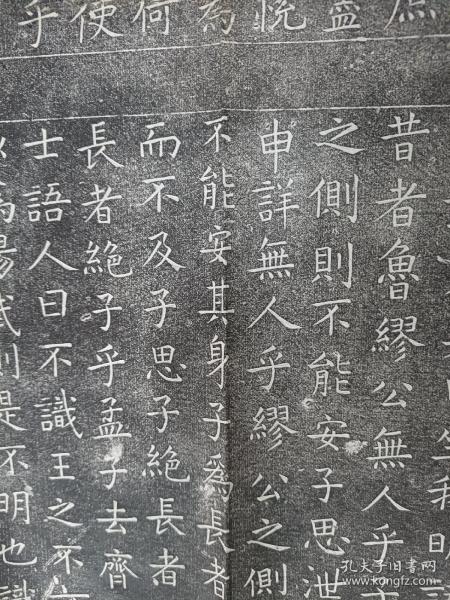 庶
盡
悅
為
何
使
乎
坐我明語
昔者魯繆公無人乎子
之側則不能安子思泄
申詳無人乎繆公之側
不能安其身子爲長者
而不及子思子絶長者
長者絶子乎孟子去齊
士語人曰不識王之不
以爲湯武則是不明也識
孔夫子旧书网
www.kongfz.com